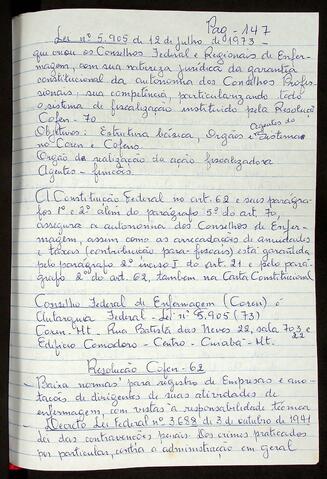 Pag - 147
Lei nº 5.905 de 12 de julho de 1973 -
que criou os Conselhos Federal e Regionais de Enfer-
magem, com sua natureza jurídica da garantia
constitucional da autonomia dos Conselhos Profis-
sionais, sua competência, particularizando todo
o sistema de fiscalização instituido pela Resolução
Cofen - 70
Objetivos: Estrutura básica, Orgãos e Sistemas
Agentes do
no Coren e Cofens.
Orgão de realização da ação fiscalizadora
Agentes - funções.
A Constituição Federal no art. 62 e seus parágra-
fos 1º e 2º além do parágrafo 5º do art. 70,
assegura a autonomia dos Conselhos de Enfer-
magem, assim como as arrecadações de anuidades
e taxas (contribuição para-fiscais) está garantida
pelo parágrafo 2º inciso I do art. 21 e pelo pará-
grafo 2º do art. 62, tambem na Carta Constitucional
Conselho Federal de Enfermagem (Coren) é
Autarquia Federal - Lei nº 5.905 (73)
Coren - Mt. Rua Batista das Neves 22, sala 703 e
Edifício Comodoro - Centro - Cuiabá - Mt. 22
Resolução Cofen - 62
- Baixa normas para registro de Empresas e ano-
tações de dirigentes de suas atividades de
enfermagem, com vistas à responsabilidade técnica
- Decreto Lei Federal nº 3.688 de 3 de outubro de 1941
lei das contravenções penais. Dos crimes praticados
por particular, contra a administração em geral